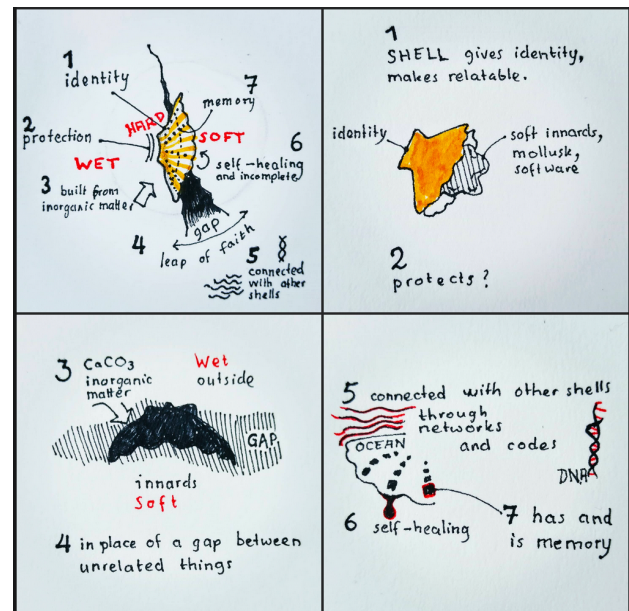 1
identity
7
memory
HARD
2
protection
SOFT
WET
6
self-healing
and incomplete
3 built from
inorganic matter
gap
4
leap of faith
5
connected
with other
shells
1
SHELL gives identity,
makes relatable.
identity
soft innards,
mollusk,
software
2
protects?
3 CaCO3
inorganic
matter
Wet
outside
GAP
innards
Soft
4 in place of a gap between
unrelated things
5 connected with other shells
through
networks
and codes
OCEAN
DNA
6 self-healing
7 has and
is memory